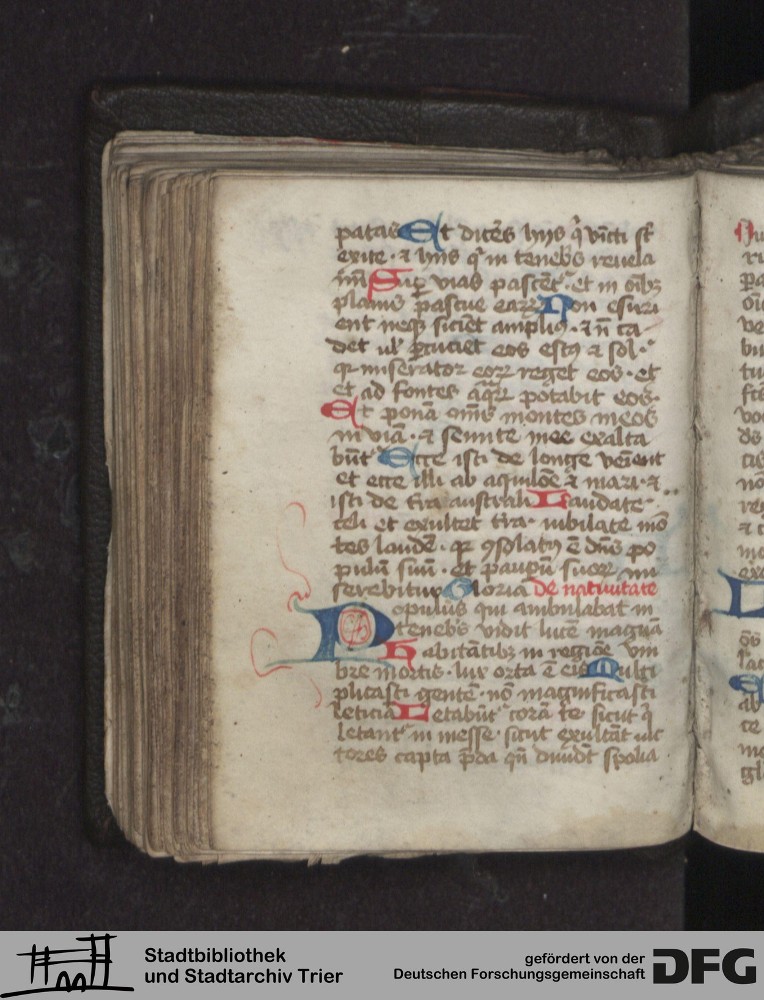 patas Et diceres hijs q̇ vīcti st̄
exite · ⁊ hijs qͥ in tenebˢ reuela
mī Suꝑ vias pascēt᷑ · et in oībꝫ
planis pascue eaꝝ Non esuri
ent neqꝫ sicient amplius · ⁊ n̄ ca
det ul̛ ꝑcuciet eos estꝰ ⁊ sol ·
qꝛ miserator eoꝝ reget eos · et
et ad fontes aq̄ꝝ potabit eos ·
Et ponā om̄s montes meos
in viā · ⁊ semite mee exalta
būt᷑ Ecce isti de longe veīent
et ecce illi ab aquilōe ⁊ mari · ⁊
isti de t̄ra australi Laudate
celi et exultet t̄ra · iubilate mō
tes laudē · qꝛ ꝯsolatꝰ ē dn̄s po
pulū suū · et paupum suoꝝ mi
serebitur Gloria de natiuitate
Populus qui ambulabat in
tenebˢ vidit lucē magnā
Habitātibꝫ in regiōe vm
bre mortis · lux orta ē eis Multi
plicasti gentē · nō magnificasti
leticiā Letabūt᷑ corā te sicut q̇
letant᷑ in messe · sicut exultāt uic
tores capta p̄da qn̄ diuidūt spolia
Stadtbibliothek
und Stadtarchiv Trier
gefördert von der
Deutschen Forschungsgemeinschaft
DFG